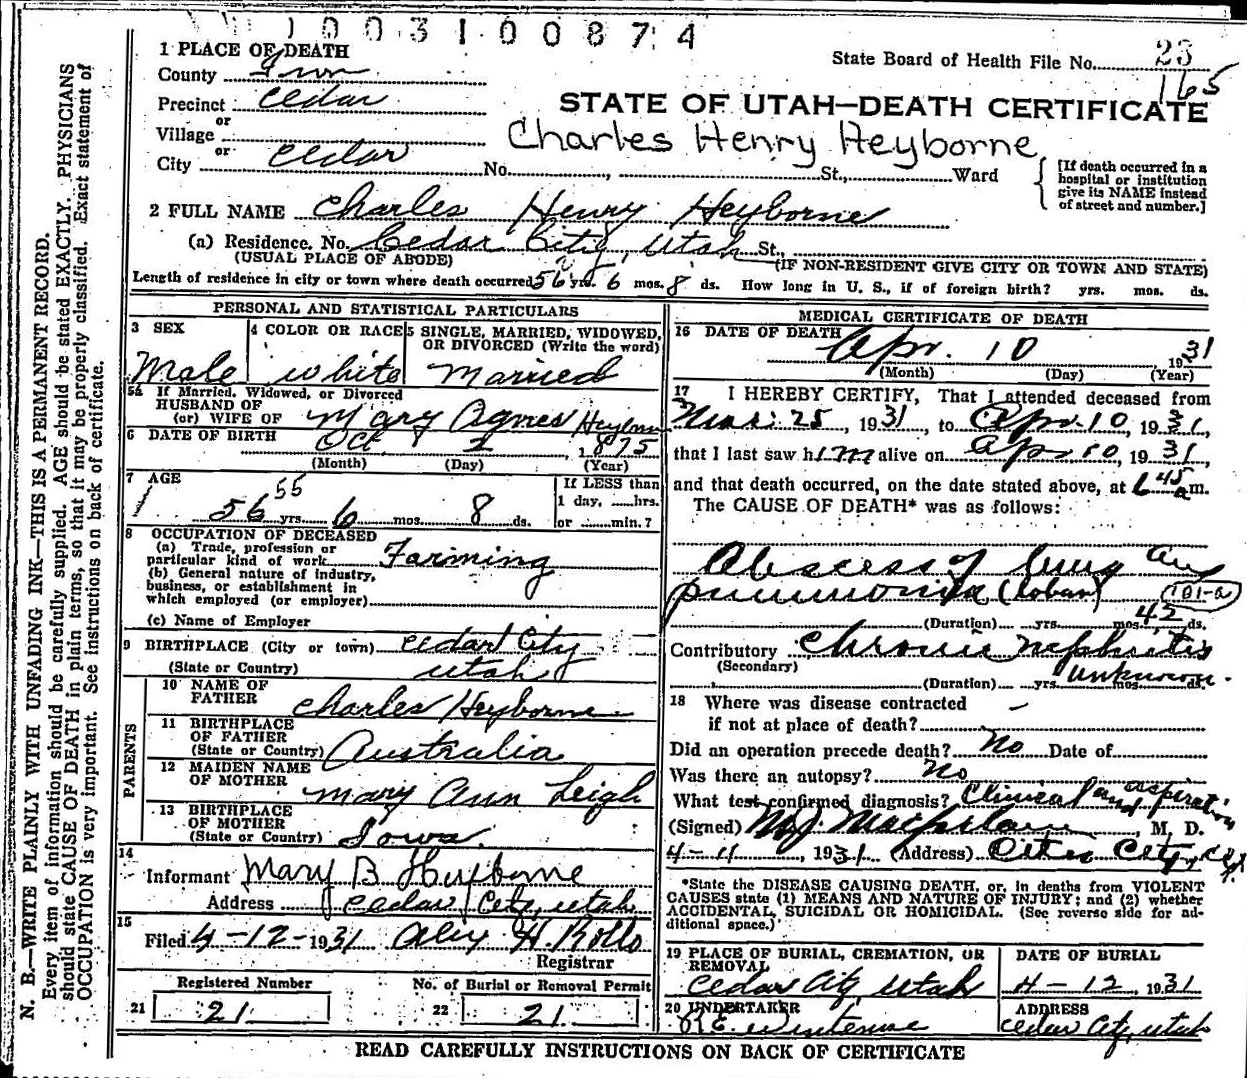 1003100874
1 PLACE OF DEATH
State Board of Health File No. 23
165
County Iron
Precinct Cedar
or
Village
or
City Cedar No. , St., Ward
STATE OF UTAH—DEATH CERTIFICATE
Charles Henry Heyborne
[If death occurred in a
hospital or institution
give its NAME instead
of street and number.]
2 FULL NAME Charles Henry Heyborne
(a) Residence. No. Cedar City, Utah St.,
(USUAL PLACE OF ABODE) (IF NON-RESIDENT GIVE CITY OR TOWN AND STATE)
Length of residence in city or town where death occurred 56 yrs. 6 mos. 8 ds. How long in U. S., if of foreign birth? yrs. mos. ds.
PERSONAL AND STATISTICAL PARTICULARS
3 SEX
Male
4 COLOR OR RACE
White
5 SINGLE, MARRIED, WIDOWED,
OR DIVORCED (Write the word)
Married
5A If Married, Widowed, or Divorced
HUSBAND OF
(or) WIFE OF Mary Agnes Heyborne
6 DATE OF BIRTH Oct 2, 1875
(Month) (Day) (Year)
7 AGE
55
56 yrs. 6 mos. 8 ds.
If LESS than
1 day, hrs.
or min. ?
8 OCCUPATION OF DECEASED
(a) Trade, profession or
particular kind of work Farming
(b) General nature of industry,
business, or establishment in
which employed (or employer)
(c) Name of Employer
9 BIRTHPLACE (City or town) Cedar City
(State or Country) Utah
PARENTS
10 NAME OF
FATHER Charles Heyborne
11 BIRTHPLACE
OF FATHER
(State or Country) Australia
12 MAIDEN NAME
OF MOTHER Mary Ann Leigh
13 BIRTHPLACE
OF MOTHER
(State or Country) Iowa
14
Informant Mary B Heyborne
Address Cedar City, Utah
15
Filed 4-12-1931 Alex H. Rollo
Registrar
Registered Number
21 21
No. of Burial or Removal Permit
22 21
MEDICAL CERTIFICATE OF DEATH
16 DATE OF DEATH
Apr. 10 1931
(Month) (Day) (Year)
17 I HEREBY CERTIFY, That I attended deceased from
Mar. 25, 1931, to Apr. 10, 1931,
that I last saw him alive on Apr 10, 1931,
and that death occurred, on the date stated above, at 6 45 a m.
The CAUSE OF DEATH* was as follows:
Abscess of lung and
pneumonia (lobar) 101-a
(Duration) yrs. mos. 42 ds.
Contributory Chronic nephritis
(Secondary)
(Duration) yrs. mos. ds. Unknown.
18 Where was disease contracted
if not at place of death? —
Did an operation precede death? No Date of
Was there an autopsy? No
What test confirmed diagnosis? Clinical and aspiration
(Signed) M. J. Macfarlane, M. D.
4-11, 1931 (Address) Cedar City,
*State the DISEASE CAUSING DEATH, or, in deaths from VIOLENT
CAUSES state (1) MEANS AND NATURE OF INJURY; and (2) whether
ACCIDENTAL, SUICIDAL OR HOMICIDAL. (See reverse side for ad-
ditional space.)
19 PLACE OF BURIAL, CREMATION, OR
REMOVAL
Cedar City, Utah
DATE OF BURIAL
4-12, 1931
20 UNDERTAKER
ADDRESS
Cedar City, Utah
READ CAREFULLY INSTRUCTIONS ON BACK OF CERTIFICATE
N. B.—WRITE PLAINLY WITH UNFADING INK—THIS IS A PERMANENT RECORD.
Every item of information should be carefully supplied. AGE should be stated EXACTLY. PHYSICIANS
should state CAUSE OF DEATH in plain terms, so that it may be properly classified. Exact statement of
OCCUPATION is very important. See instructions on back of certificate.